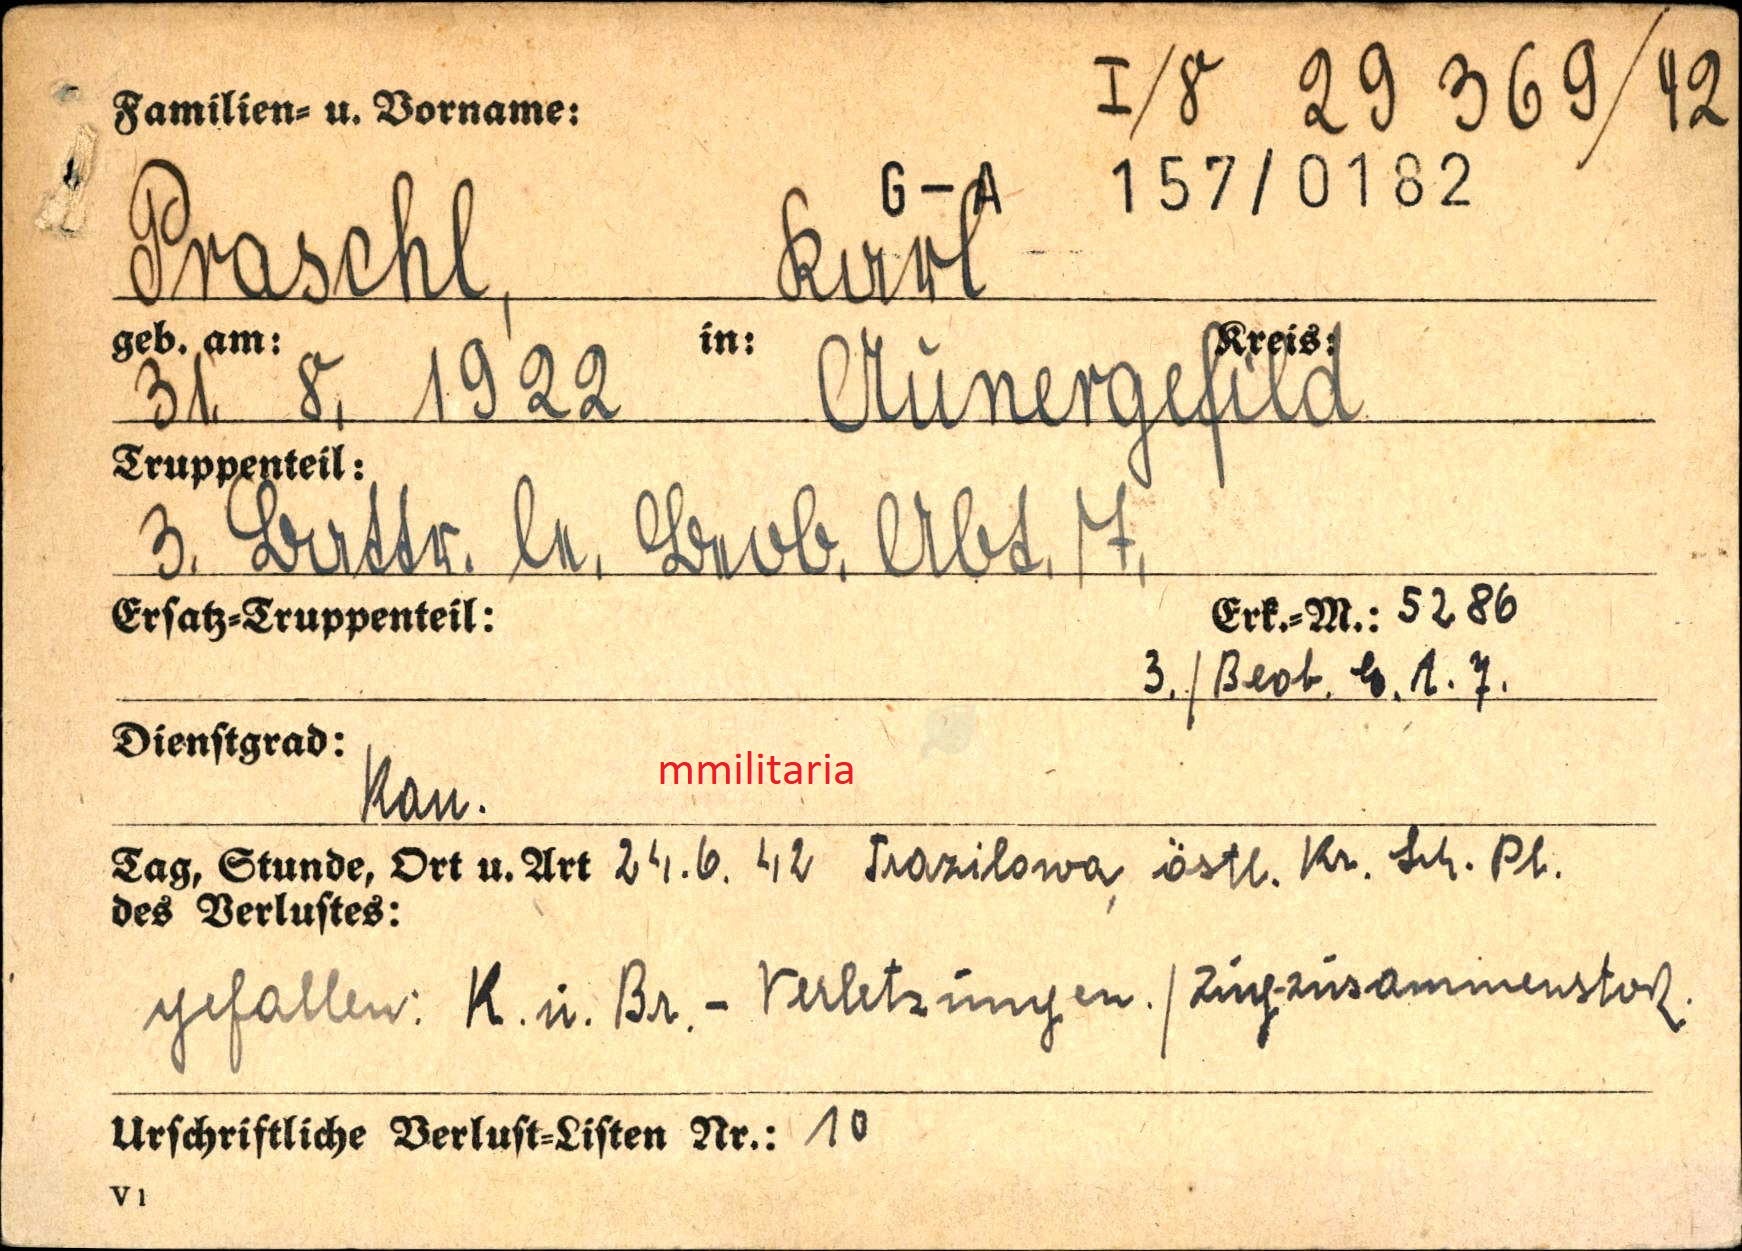 I/8 29 369/42
Familien- u. Vorname:
G-A 157/0182
Praschl, Karl
geb. am: in: Kreis:
31. 8. 1922 Aunergefild
Truppenteil:
3. Battr. le. Beob. Abt. 7.
Ersatz-Truppenteil: Erk.-M.: 5286
3./Beob. 7.
Dienstgrad:
Kan.
mmilitaria
Tag, Stunde, Ort u. Art 24.6.42 östl. Kr. Pl.
des Verlustes:
gefallen: K. u. Br.-Verletzungen./Zugzusammenstoß.
Urschriftliche Verlust-Listen Nr.: 10
V 1